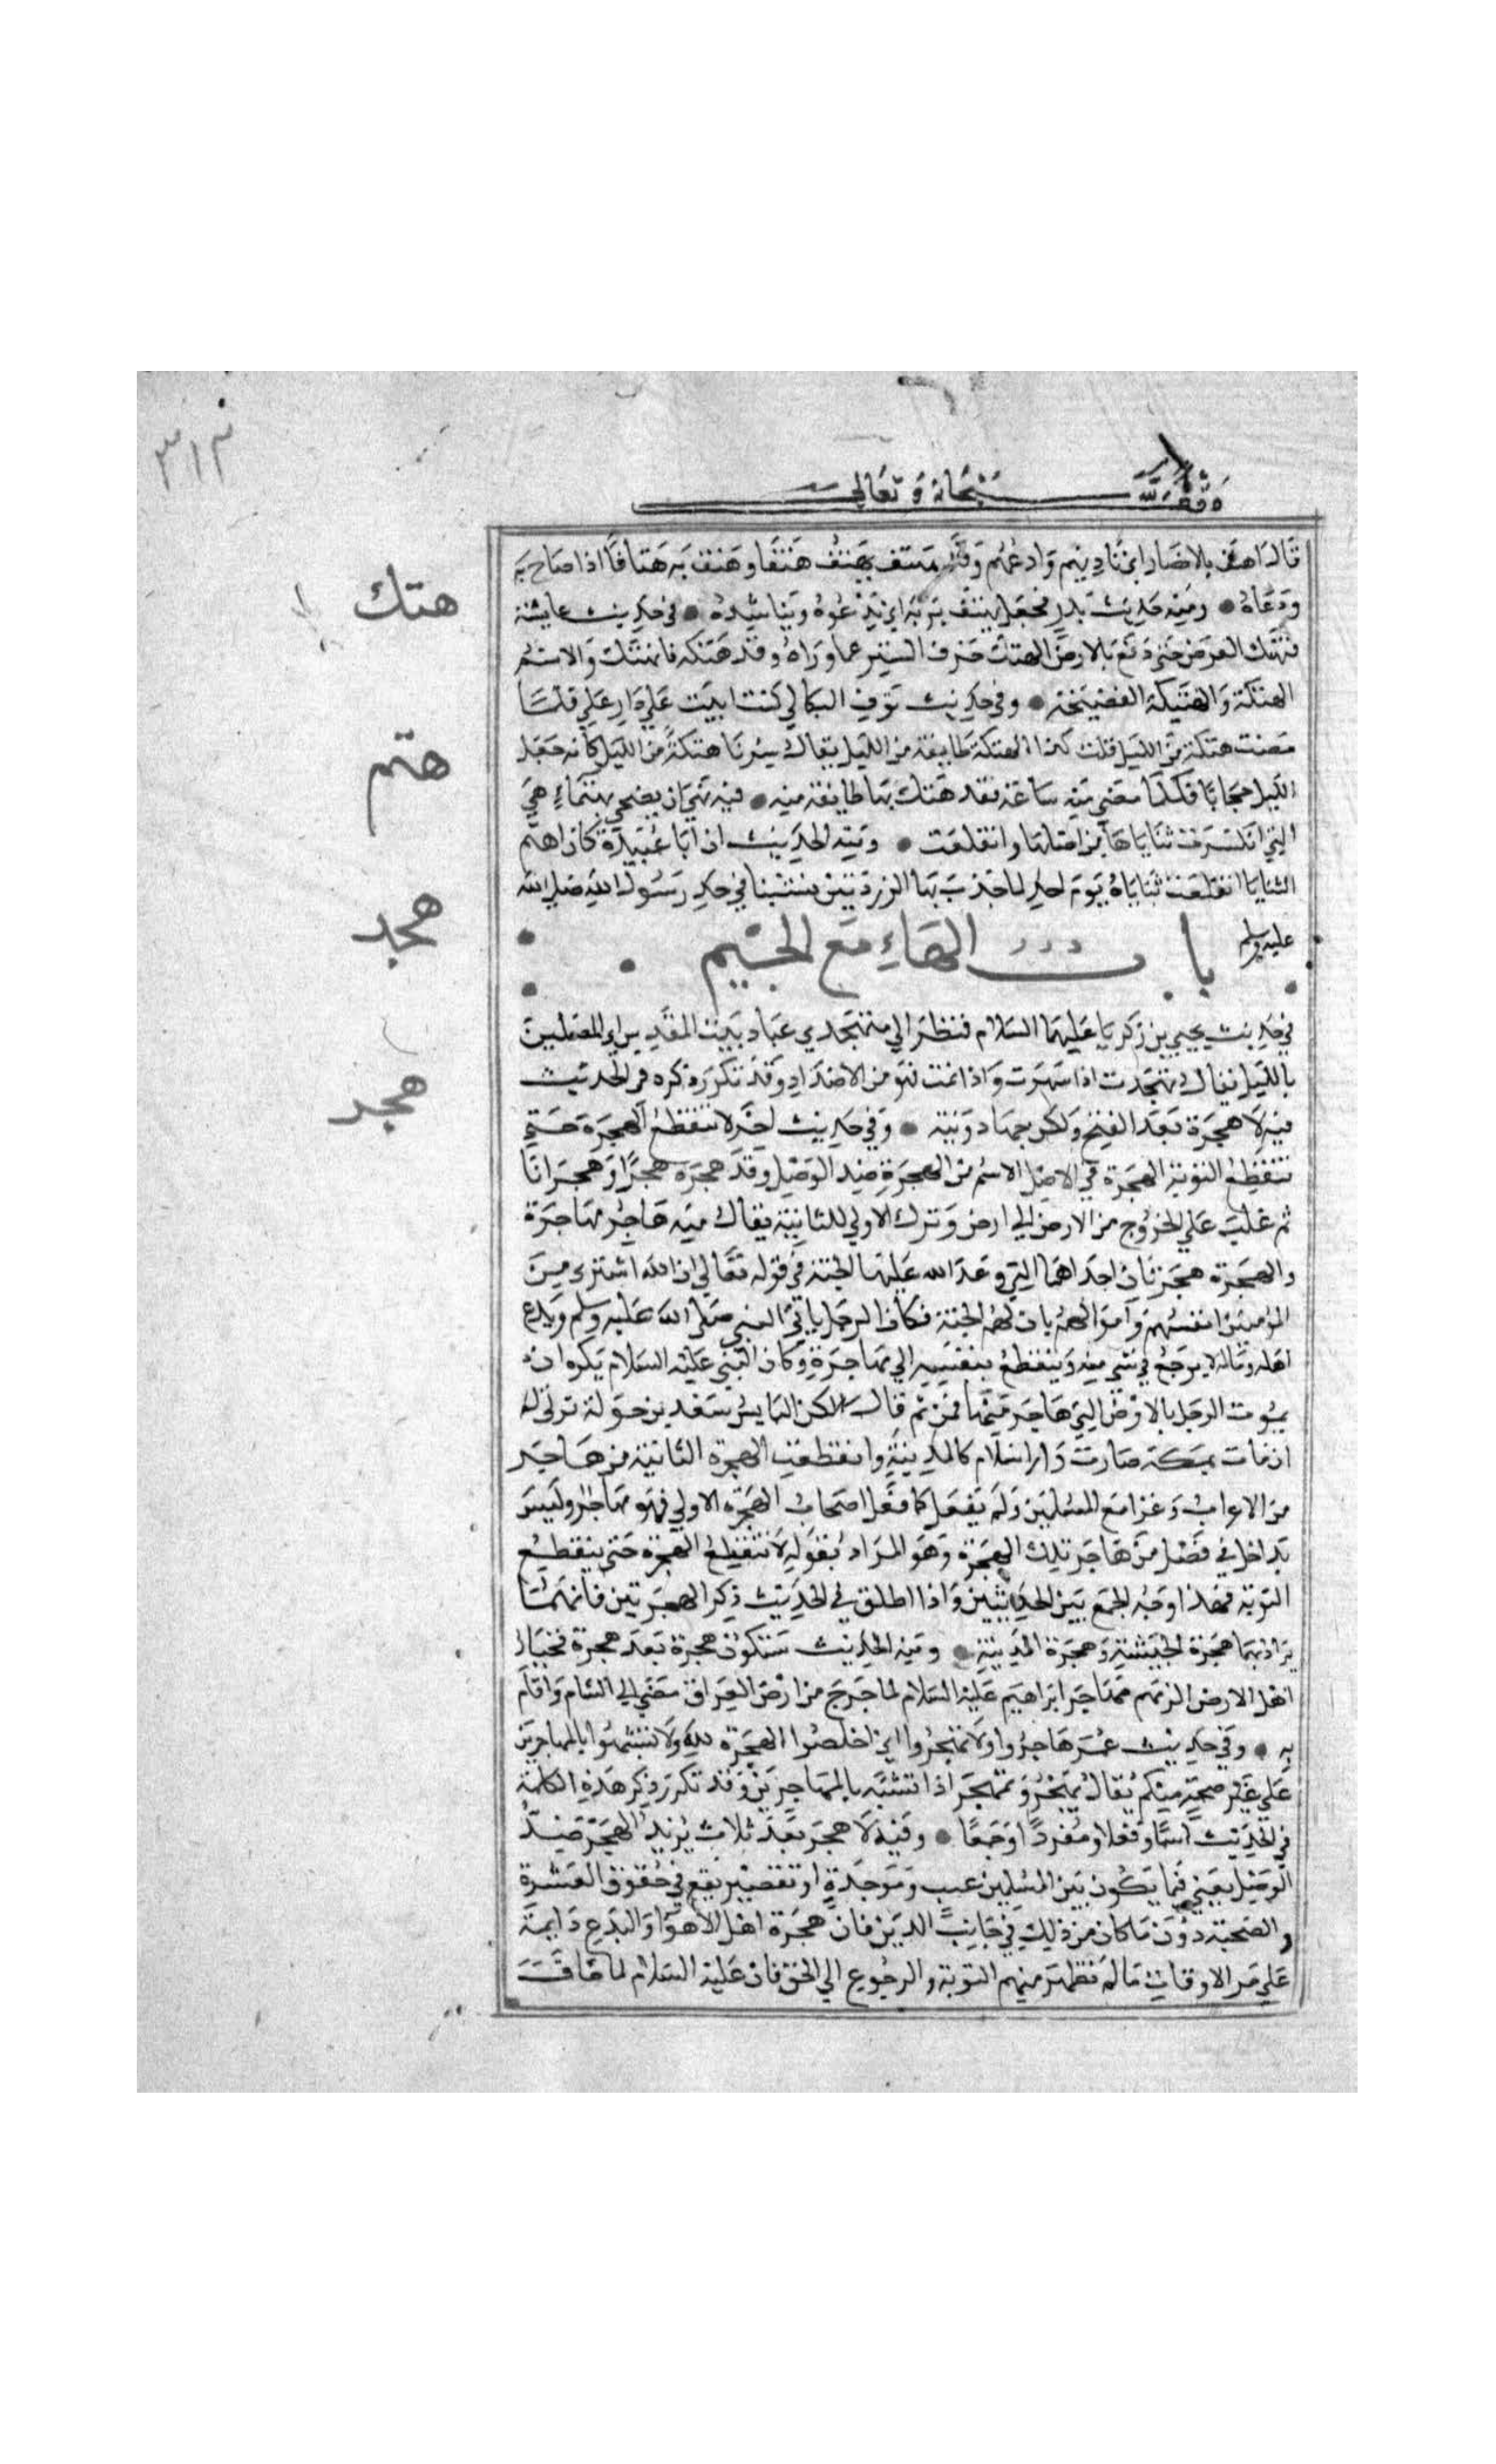 ٣١٣
وقف لله سبحانه وتعالى
قال اهتف بالانصار اي نادهم وادعهم وقد هتف يهتف هتفا وهتف به هتافا اذا صاح به
ودعاه ● ومنه حديث بدر فجعل يهتف بربه اي يدعوه ويناشده ● في حديث عايشة
هتك
فهتك العرض حتى وقع بالارض الهتك خرق الستر عما وراه وقد هتكه فانهتك والاسم
الهتكة والهتيكة الفضيحة ● وفي حديث نوف البكالي كنت ابيت على دار علي فلما
مضت هتكة من الليل قلت كذا الهتكة طايفة من الليل يقال سرنا هتكة من الليل كانه جعل
هتم
الليل حجابا فكلما مضى منه ساعة فقد هتك بها طايفة منه ● فيه نهى ان يضحى بهتماء هي
التي انكسرت ثناياها من اصلها وانقلعت ● ومنه الحديث ان ابا عبيدة كان اهتم
الثنايا انقلعت ثناياه يوم احد لما جذب بها الزردتين نشبتا في خد رسول الله صلى الله
هجد
عليه وسلم
باب الهاء مع الجيم
في حديث يحيى بن زكريا عليهما السلام فنظر الي متهجدي عباد بيت المقدس اي المصلين
بالليل يقال تهجدت اذا سهرت واذا نمت فهو من الاضداد وقد تكرر ذكره في الحديث
هجر
فيه لا هجرة بعد الفتح ولكن جهاد ونية ● وفي حديث اخر لا تنقطع الهجرة حتى
تنقطع التوبة الهجرة في الاصل الاسم من الهجرة ضد الوصل وقد هجره هجرا وهجرانا
ثم غلب علي الخروج من الارض الي ارض وترك الاولي للثانية يقال منه هاجر مهاجرة
والهجرة هجرتان احداهما التي وعد الله عليها الجنة في قوله تعالي ان الله اشترى من
المومنين انفسهم واموالهم بان لهم الجنة فكان الرجل ياتي النبي صلى الله عليه وسلم ويدع
اهله وماله لا يرجع في شي منه وينقطع بنفسه الي مهاجره وكان النبي عليه السلام يكره ان
يموت الرجل بالارض التي هاجر منها فمن ثم قال لكن البايس سعد بن خولة يرثى له
ان مات بمكة صارت دار اسلام كالمدينة وانقطعت الهجرة الثانية من هاجر
من الاعراب وغزا مع المسلمين ولم يفعل كما فعل اصحاب الهجرة الاولي فهو مهاجر وليس
بداخل في فضل من هاجر تلك الهجرة وهو المراد بقوله لا تنقطع الهجرة حتى ينقطع
التوبة فهذا وجه الجمع بين الحديثين واذا اطلق في الحديث ذكر الهجرتين فانهما
يراد بهما هجرة الحبشة وهجرة المدينة ● ومنه الحديث ستكون هجرة بعد هجرة فخيار
اهل الارض الزمهم مهاجر ابراهيم عليه السلام لما خرج من ارض العراق مضي الي الشام واقام
به ● وفي حديث عمر هاجروا ولا تهجروا اي اخلصوا الهجرة لله ولا تتشبهوا بالمهاجرين
علي غير صحة منكم يقال تهجر وتمهجر اذا تشبه بالمهاجرين وقد تكرر ذكر هذه الكلمة
في الحديث اسما وفعلا ومفردا وجمعا ● وفيه لا هجر بعد ثلاث يريد الهجر ضد
الوصل يعني فيما يكون بين المسلمين عيب وموجدة او تقصير يقع في حقوق العشرة
والصحبة دون ما كان من ذلك في جانب الدين فان هجرة اهل الاهوا والبدع دايمة
علي مر الاوقات ما لم تظهر منهم التوبة والرجوع الي الحق فان عليه السلام لما خاف